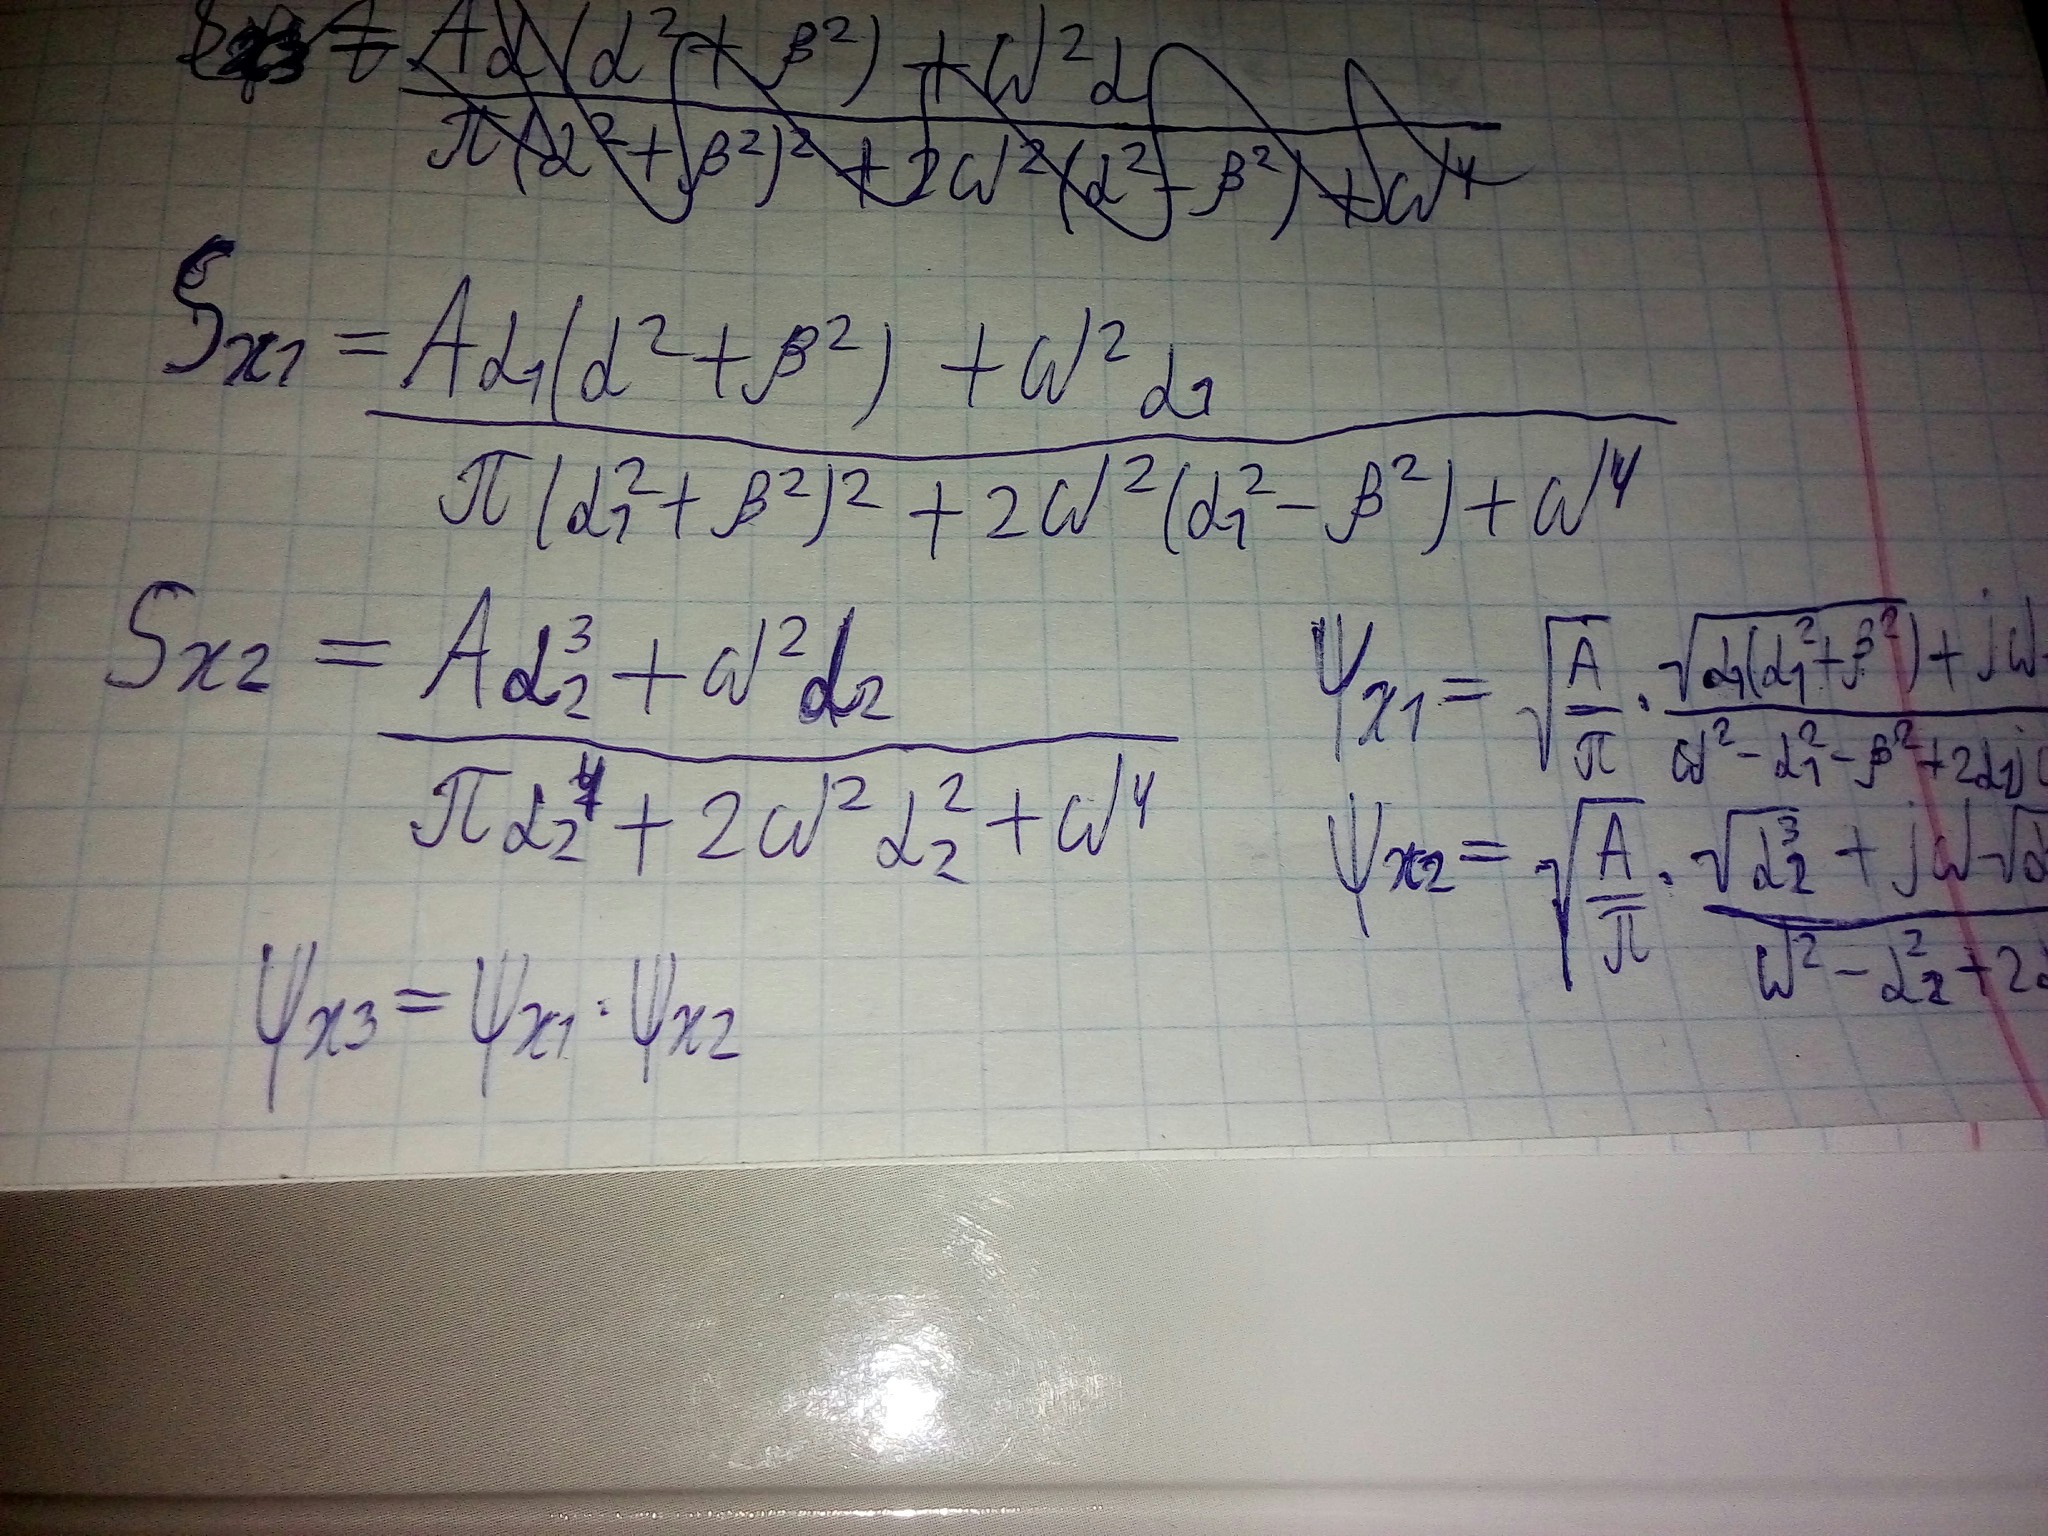 Aα(α² + β²) + ω²α
π(α² + β²)² + 2ω²(α² - β²) + ω⁴
Sx1 = Aα₁(α² + β²) + ω²α₁
π(α₁² + β²)² + 2ω²(α₁² - β²) + ω⁴
Sx2 = Aα₂³ + ω²α₂
πα₂⁴ + 2ω²α₂² + ω⁴
ψx1 = √A/π · √α₁(α₁² + β²) + jω
ω² - α₁² - β² + 2α₁j
ψx2 = √A/π · √α₂³ + jω√α
ω² - α₂² + 2
ψx3 = ψx1 · ψx2